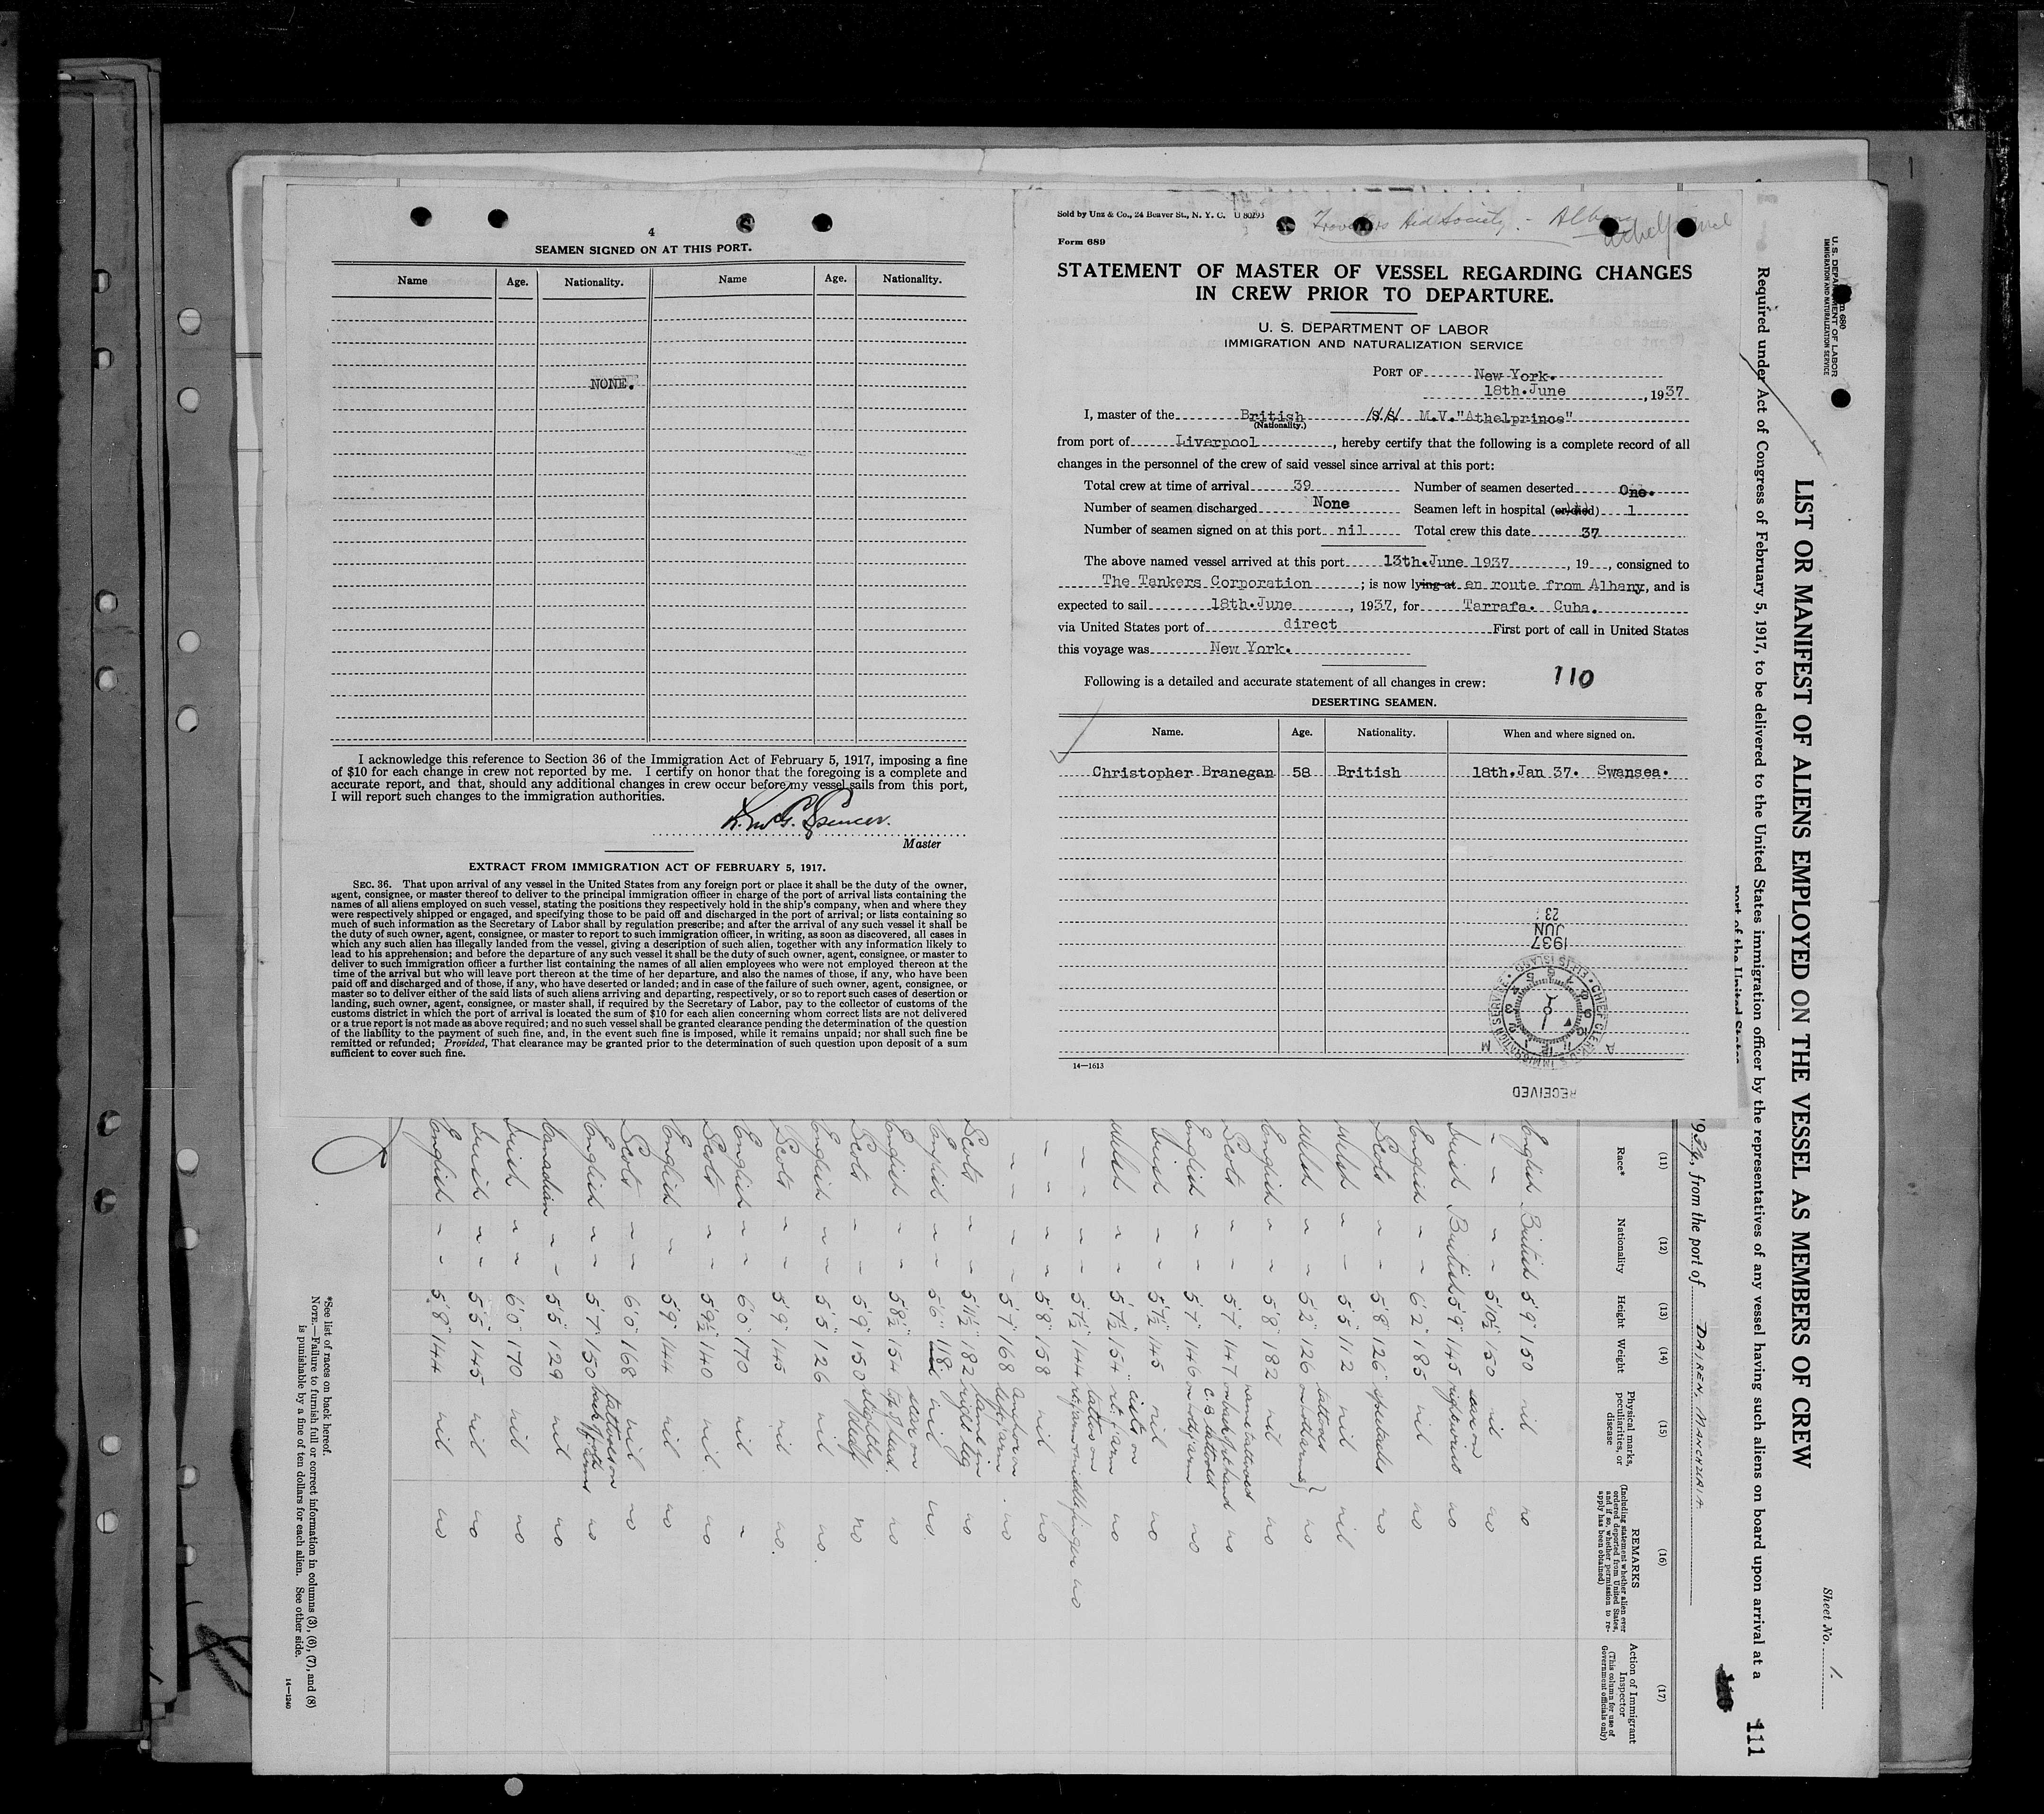 4
SEAMEN SIGNED ON AT THIS PORT.
Name Age. Nationality. Name Age. Nationality.
NONE.
I acknowledge this reference to Section 36 of the Immigration Act of February 5, 1917, imposing a fine
of $10 for each change in crew not reported by me. I certify on honor that the foregoing is a complete and
accurate report, and that, should any additional changes in crew occur before my vessel sails from this port,
I will report such changes to the immigration authorities.
Spencer.
Master
EXTRACT FROM IMMIGRATION ACT OF FEBRUARY 5, 1917.
SEC. 36. That upon arrival of any vessel in the United States from any foreign port or place it shall be the duty of the owner,
agent, consignee, or master thereof to deliver to the principal immigration officer in charge of the port of arrival lists containing the
names of all aliens employed on such vessel, stating the positions they respectively hold in the ship's company, when and where they
were respectively shipped or engaged, and specifying those to be paid off and discharged in the port of arrival; or lists containing so
much of such information as the Secretary of Labor shall by regulation prescribe; and after the arrival of any such vessel it shall be
the duty of such owner, agent, consignee, or master to report to such immigration officer, in writing, as soon as discovered, all cases in
which any such alien has illegally landed from the vessel, giving a description of such alien, together with any information likely to
lead to his apprehension; and before the departure of any such vessel it shall be the duty of such owner, agent, consignee, or master to
deliver to such immigration officer a further list containing the names of all alien employees who were not employed thereon at the
time of the arrival but who will leave port thereon at the time of her departure, and also the names of those, if any, who have been
paid off and discharged and of those, if any, who have deserted or landed; and in case of the failure of such owner, agent, consignee, or
master so to deliver either of the said lists of such aliens arriving and departing, respectively, or so to report such cases of desertion or
landing, such owner, agent, consignee, or master shall, if required by the Secretary of Labor, pay to the collector of customs of the
customs district in which the port of arrival is located the sum of $10 for each alien concerning whom correct lists are not delivered
or a true report is not made as above required; and no such vessel shall be granted clearance pending the determination of the question
of the liability to the payment of such fine, and, in the event such fine is imposed, while it remains unpaid; nor shall such fine be
remitted or refunded; Provided, That clearance may be granted prior to the determination of such question upon deposit of a sum
sufficient to cover such fine.
Sold by Unz & Co., 24 Beaver St., N. Y. C. U 80193
Travelers Aid Society - Albany
Athelprince
Form 689
STATEMENT OF MASTER OF VESSEL REGARDING CHANGES
IN CREW PRIOR TO DEPARTURE.
U. S. DEPARTMENT OF LABOR
IMMIGRATION AND NATURALIZATION SERVICE
PORT OF New York.
18th.June, 1937
I, master of the British S.S. M.V."Athelprince"
(Nationality.)
from port of Liverpool, hereby certify that the following is a complete record of all
changes in the personnel of the crew of said vessel since arrival at this port:
Total crew at time of arrival 39 Number of seamen deserted One.
Number of seamen discharged None Seamen left in hospital (or died) 1
Number of seamen signed on at this port nil Total crew this date 37
The above named vessel arrived at this port 13th.June 1937, 19, consigned to
The Tankers Corporation; is now lying at en route from Albany, and is
expected to sail 18th.June, 1937, for Tarrafa. Cuba.
via United States port of direct First port of call in United States
this voyage was New York.
Following is a detailed and accurate statement of all changes in crew: 110
DESERTING SEAMEN.
Name. Age. Nationality. When and where signed on.
Christopher Branegan 58 British 18th.Jan 37. Swansea.
RECEIVED
CHIEF CLERK U.S. IMMIGRATION SERVICE ELLIS ISLAND
A M
1937
JUN
23
14—1613
U. S. DEPARTMENT OF LABOR
IMMIGRATION AND NATURALIZATION SERVICE
Sheet No. 1.
LIST OR MANIFEST OF ALIENS EMPLOYED ON THE VESSEL AS MEMBERS OF CREW
Required under Act of Congress of February 5, 1917, to be delivered to the United States immigration officer by the representatives of any vessel having such aliens on board upon arrival at a
port of the United States
111
, from the port of DAIREN, MANCHURIA
(11) (12) (13) (14) (15) (16) (17)
Race* Nationality Height Weight Physical marks, peculiarities, or disease REMARKS (Including statement whether alien ever ordered deported from United States, and if so, whether permission to re-apply has been obtained) Action of Immigrant Inspector (This column for use of Government officials only)
English British 5'9" 150 nil no
" " 5'10½ 150 nil no
Irish British 5'9" 145 scar on right wrist no
English " 6'2" 185 nil no
Scots " 5'8" 126 spectacles no
Welsh " 5'5" 112 nil nil
Welsh " 5'2" 126 tattoos on both arms no
English " 5'8" 182 nil no
Scots " 5'7" 147 name tattooed on back of left hand no
English " 5'7" 146 C.B. tattooed on left arm no
Irish " 5'7½ 145 nil no
Welsh " 5'7½ 154 rt. f'arm no
" " 5'7½" 144 tattoo on no
" " 5'8" 158 nil no
" " 5'7" 168 anchor on left f'arm no
Scots " 5'11½ 182 right leg no
English " 5'6" 118 nil no
English " 5'8½ 154 scar on top of head no
Scots " 5'9" 150 slightly deaf no
English " 5'5" 126 nil no.
Scots " 5'9" 145 nil no.
English " 6'0" 170 nil -
Scots " 5'9½ 140 nil. no
English " 5'9" 144 nil no
Scots " 6'0" 168 nil no
English " 5'7" 150 tattoos on both f'arms no
Canadian " 5'5" 129 nil no
Irish " 6'0" 170 nil no
Irish " 5'5" 145 nil no
English " 5'8" 144 nil no
*See list of races on back hereof.
NOTE.—Failure to furnish full or correct information in columns (3), (6), (7), and (8)
is punishable by a fine of ten dollars for each alien. See other side.
14—1240